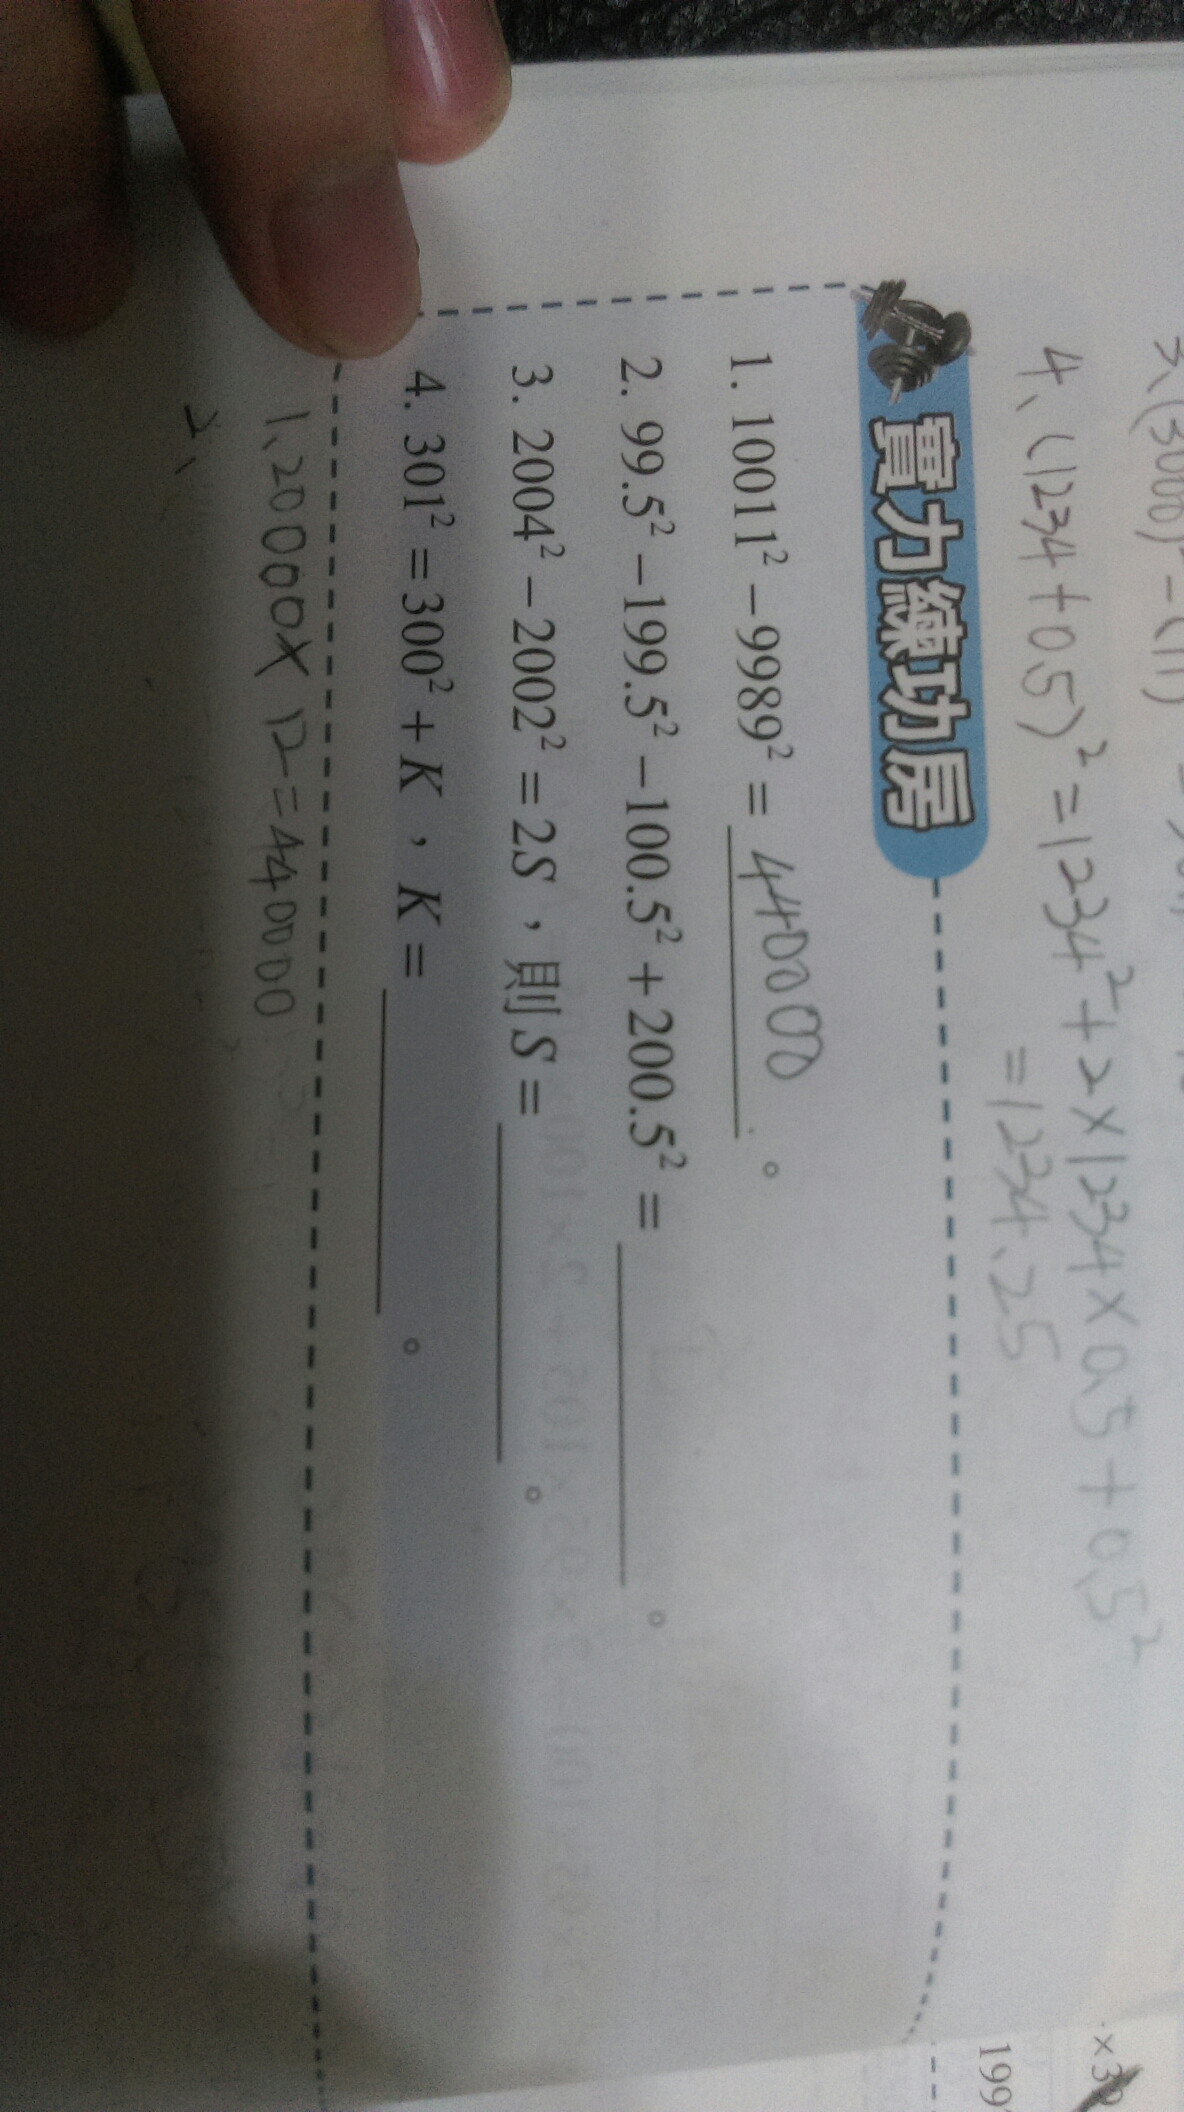 4、(1234+0.5)²=1234²+2×1234×0.5+0.5²
=1234.25
實力練功房
1. 10011²−9989²= 440000 。
2. 99.5²−199.5²−100.5²+200.5²=          。
3. 2004²−2002²=2S，則S=          。
4. 301²=300²+K，K=          。
1、20000×12=440000
2、
×3
199